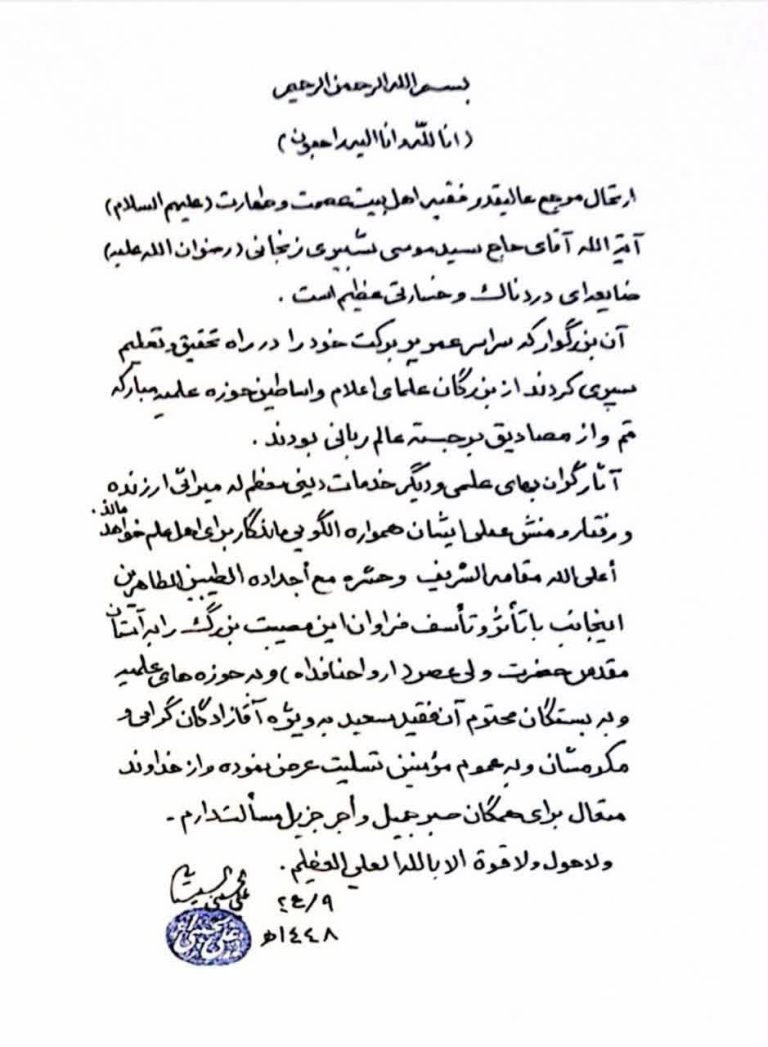 بسم الله الرحمن الرحیم
(انا للّه وانا الیه راجعون)
ارتحال مرجع عالیقدر فقیه اهل بیت عصمت و طهارت (علیهم السلام)
آیة الله آقای حاج سید موسی شبیری زنجانی (رضوان الله علیه)
ضایعه‌ای دردناك و خسارتی عظیم است .
آن بزرگوار که سراسر عمر پر برکت خود را در راه تحقیق و تعلیم
سپری کردند از بزرگان علمای اعلام و اساطین حوزه علمیه مبارکه
قم و از مصادیق برجسته عالم ربانی بودند .
آثار گران بهای علمی و دیگر خدمات دینی معظم له میراثی ارزنده
و رفتار و منش عملی ایشان همواره الگویی ماندگار برای اهل علم خواهد ماند .
أعلی الله مقامه الشریف وحشره مع أجداده الطیبین الطاهرین
اینجانب با تأثر و تأسف فراوان این مصیبت بزرگ را به آستان
مقدس حضرت ولی عصر (ارواحنا فداه) و به حوزه های علمیه
و به بستگان محترم آن فقید سعید به ویژه آقازادگان گرامی و
مکرمشان و به عموم مؤمنین تسلیت عرض نموده و از خداوند
متعال برای همگان صبر جمیل و أجر جزیل مسألت دارم -
ولا حول ولا قوة الا بالله العلي العظیم .
علي الحسیني السیستاني
٢٤/٩
١٤٤٨هـ